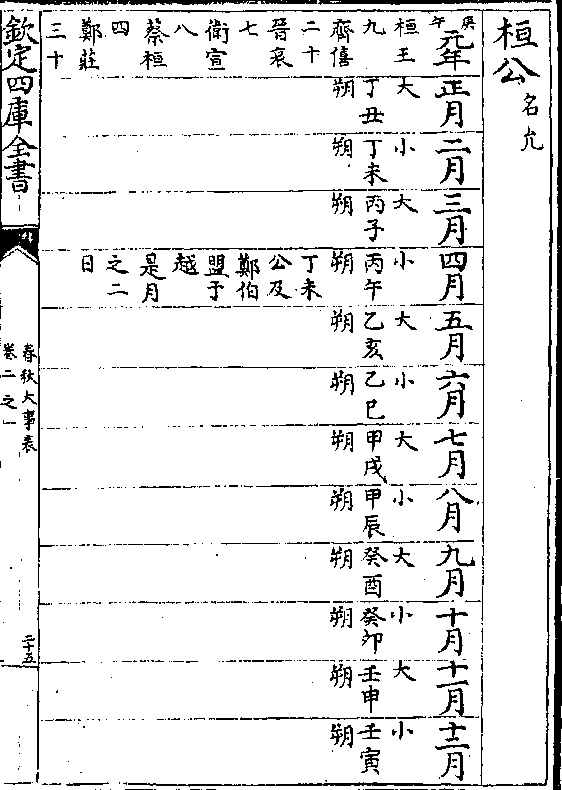 桓公名允
庚午
元年
桓王
九
齊僖
二十
晉哀
七
衛宣
八
蔡桓
四
鄭莊
三十
正月
大
丁丑
朔
二月
小
丁未
朔
三月
大
丙子
朔
四月
小
丙午
朔
丁未
公及
鄭伯
盟于
越
是月
之二
日
五月
大
乙亥
朔
六月
小
乙巳
朔
七月
大
甲戌
朔
八月
小
甲辰
朔
九月
大
癸酉
朔
十月
小
癸卯
朔
十一月
大
壬申
朔
十二月
小
壬寅
朔
欽定四庫全書
春秋大事表
卷二之一
二十五